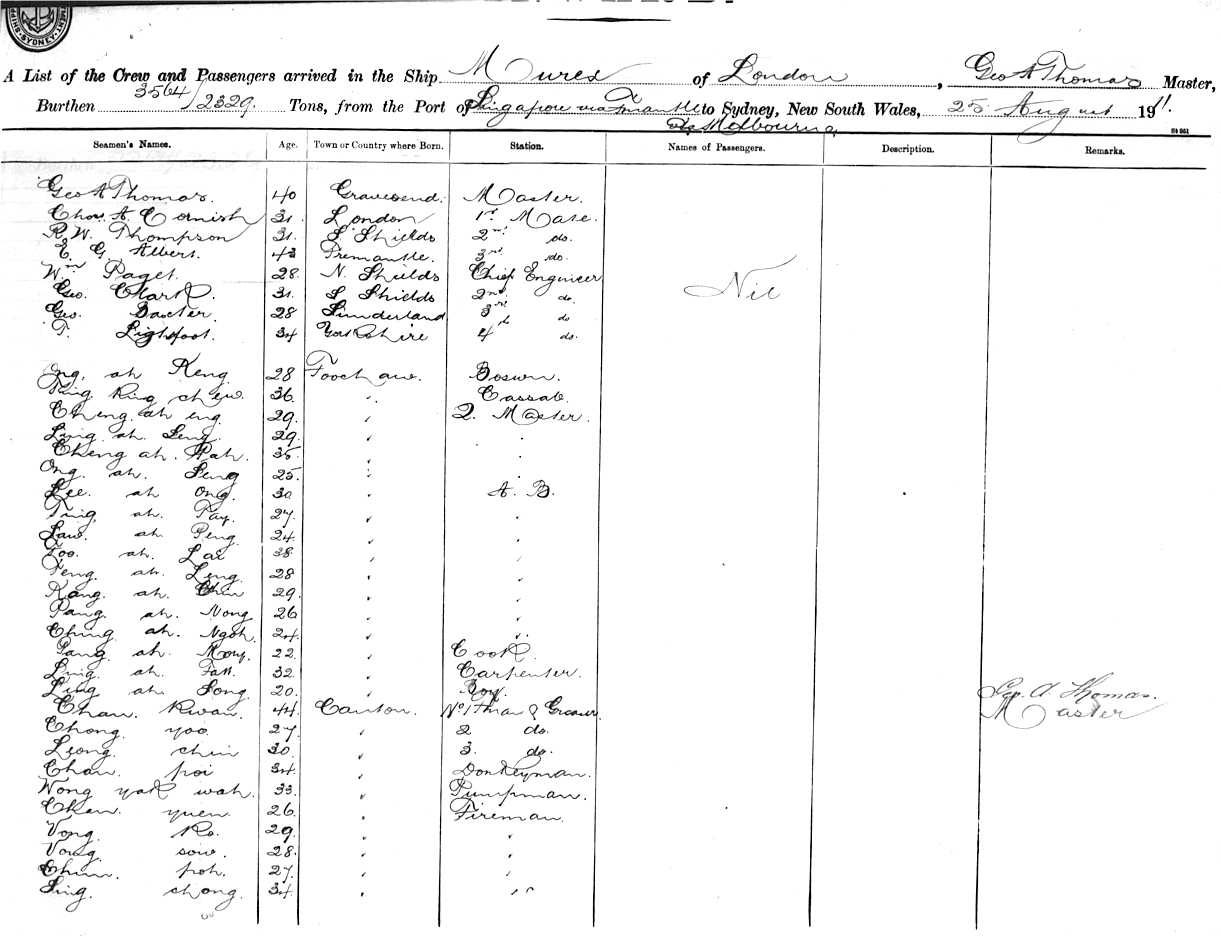 SYDNEY
A List of the Crew and Passengers arrived in the Ship Murex of London, Geo A Thomas Master,
Burthen 3564/2329. Tons, from the Port of Singapore via Fremantle to Sydney, New South Wales, 25 August 1911.
& Melbourne
Seamen's Names. Age. Town or Country where Born. Station. Names of Passengers. Description. Remarks.
Geo A Thomas. 40 Gravesend. Master.
Chas. A. Cornish 31. London 1st Mate.
R. W. Thompson 31. S Shields 2nd do.
E. G. Albert. 43 Fremantle. 3rd do
Wm Paget. 28. N. Shields Chief Engineer
Nil
Geo. Clark. 31. S Shields 2nd do
Geo. Baxter. 28 Sunderland 3rd do
T. Lightfoot. 34 Yorkshire 4th do.
Ong. ah Keng 28 Foochaw. Boswn.
Ting King chew. 36. " Cassab.
Cheng ah eng 29. " Q. Master.
Ling ah Seng. 29. " "
Cheng ah. Hah. 35. " "
Ong. ah. Seng 25. " "
Lee. ah Ong. 30 " A. B.
Ting. ah. Pay. 27. " "
Law. ah Peng 24. " "
Foo. ah. Lai 38. " "
Feng. ah. Leng. 28 " "
Kang. ah. Chin 29. " "
Pang. ah. Nong 26 " "
Ching ah. Ngoh. 24. " "
Pang ah. Moy. 22. " Cook.
Ling ah. Fatt. 32. " Carpenter.
Ling ah Song. 20. " Boy.
Geo. A Thomas.
Chan. Kwan. 44 Canton. No 1 Fman & Greaser.
Master
Chong yoo. 27. " 2 do.
Leong. chin 30. " 3. do.
Chan. poi 34. " Donkeyman.
Wong yak wah. 33. " Pumpman.
Chan. yuen. 26. " Fireman.
Vong. Ko. 29. " "
Vong sow. 28. " "
Chin. poh. 27. " "
Sing. chong. 34. " "